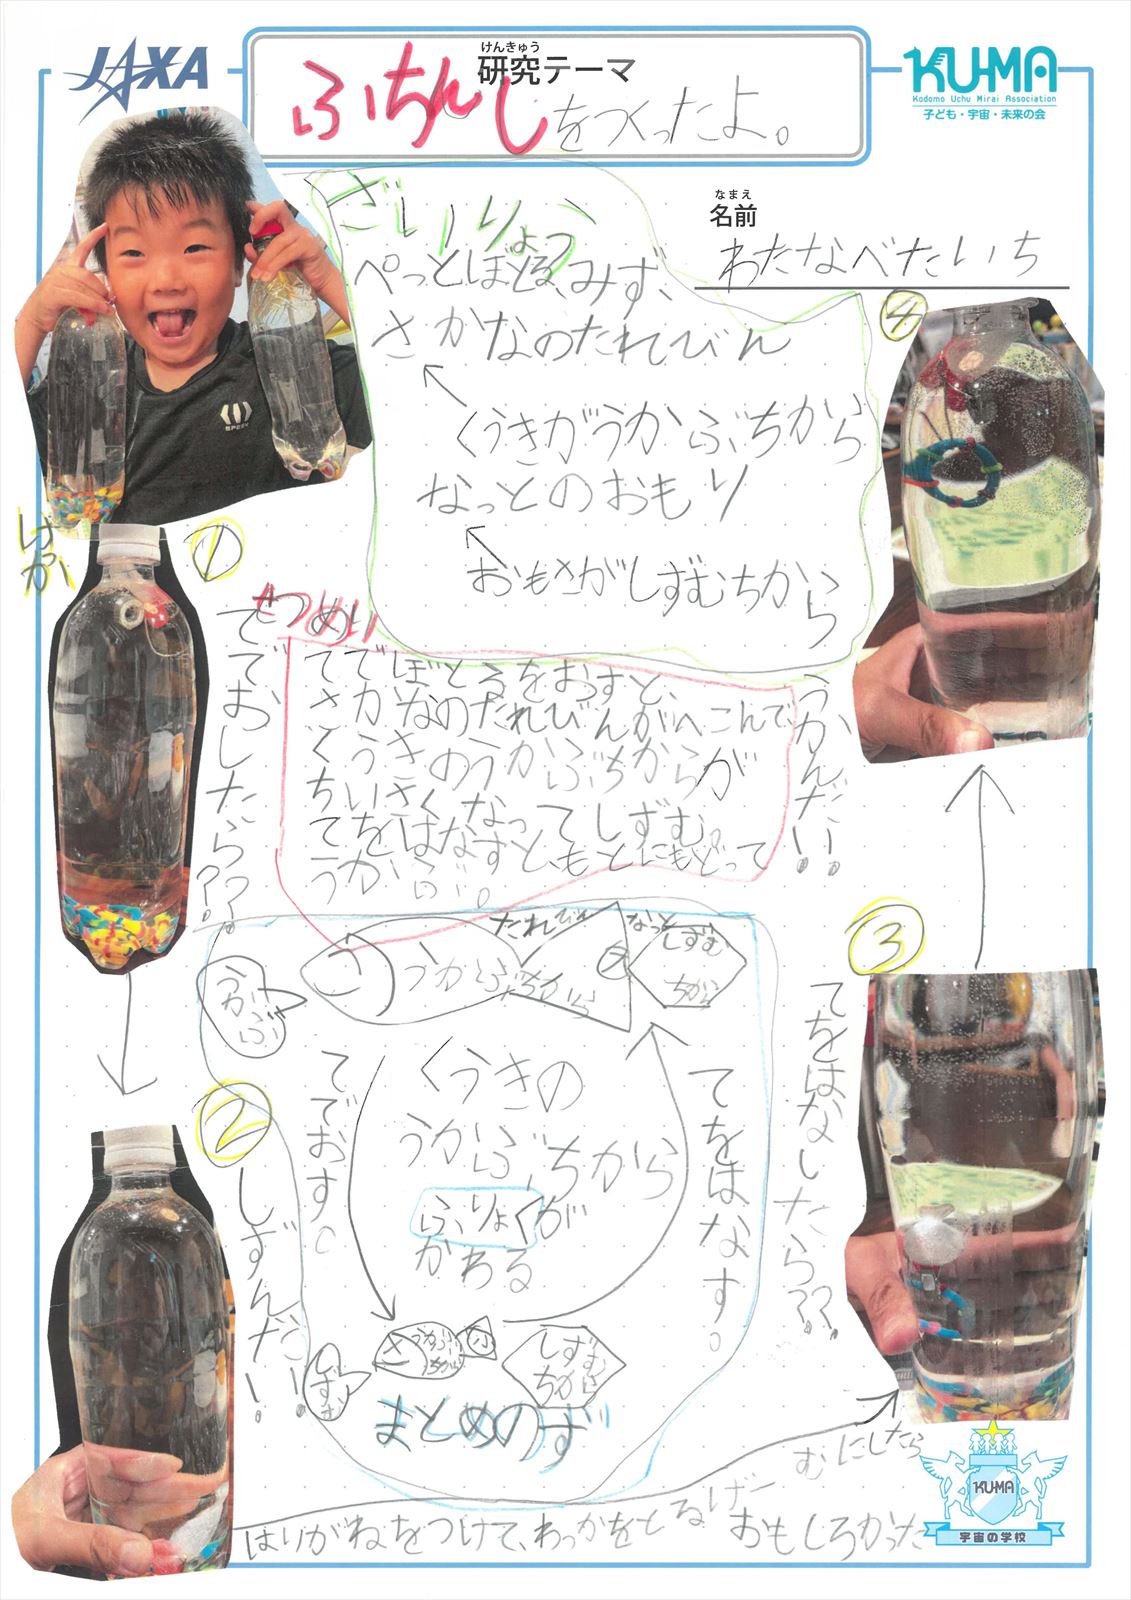 JAXA
けんきゅう
研究テーマ
ふちんしをつくったよ。
KU-MA
Kodomo Uchu Mirai Association
子ども・宇宙・未来の会
なまえ
名前
わたなべたいち
ざいりょう
ぺっとぼとる、みず、
さかなのたれびん
くうきがうかぶちから
なっとのおもり
おもさがしずむちから
①
てでおしたら??
せつめい
てでぼとるをおすと、
さかなのたれびんがへこんで、
くうきのうかぶちからが
ちいさくなってしずむ。
てをはなすと、もとにもどって
うかぶ。
②
しずんだ!!
③
てをはなしたら??
④
うかんだ!!
うかぶ
うかぶちから
たれびん
なっと
しずむ
ちから
てでおす。
くうきの
うかぶちから
ふりょくが
かわる
てをはなす。
しずむ
さ
うかぶ
ちから
しずむ
ちから
まとめのず
はりがねをつけて、わっかをとるげーむにしたら
おもしろかった
KU-MA
宇宙の学校